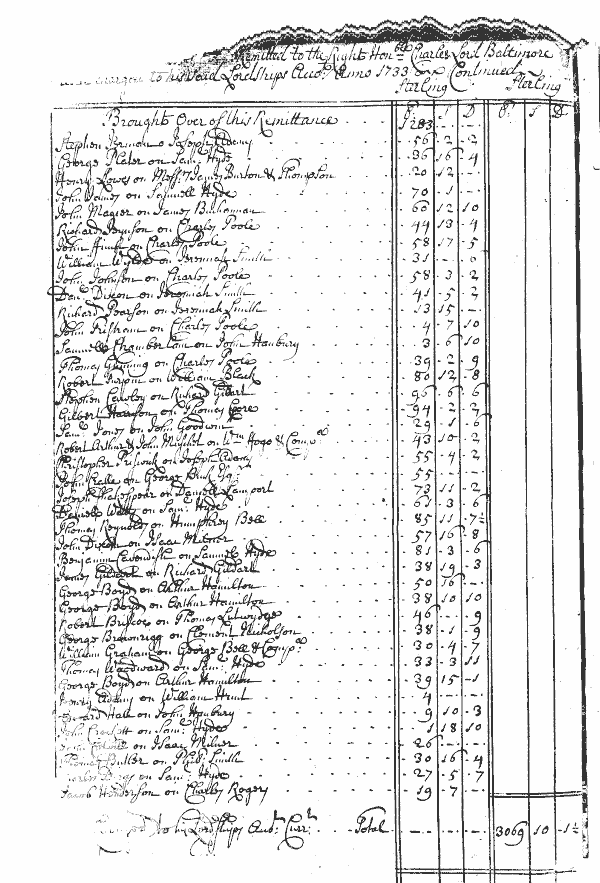 Remitted to the Right Hon:ble Charles Lord Baltimore
to his Said Lordships Acco:t Anno 1733 Continued
Starling Starling
£ S D £ S D
Brought Over of this Remittance 1283
Stephen Yerman o Joseph Adams 56 2 2
George Plater on Sam: Hyde 36 16 4
Henry Lowes on Mess:rs James Burton & Thompson 20 12 -
John James on Samuell Hyde 70 1 -
John Magier on James Buchannan 60 12 10
Richard Benson on Charles Poole 44 13 4
John on Charles Poole 58 17 5
William on Jeremiah Smith 31 - 6
John Johnson on Charles Poole 58 3 2
Dan: Dixon on Jeremiah Smith 41 5 2
Richard Pearson on Jeremiah Smith 13 15 -
John Fristham on Charles Poole 4 7 10
Samuell Chamberlain on John Hanbury 3 6 10
Thomas Gunning on Charles Poole 39 2 9
Robert on William Black 80 12 8
Stephen Cawsley on Richard Gildart 96 6 6
Gilbert Harrison on Thomas 94 2 2
Sam: Jones on John Goodwin 29 1 6
Robert Arthur & John Mitchel on W:m Hogg & Comp:a 43 10 2
Christopher on Joseph Adams 55 4 2
John on George Esq:r 55 - -
Joseph Shakespear on Daniell Lamport 73 11 2
Daniell Wells on Sam: Hyde 61 3 6
Thomas Reynolds on Humphrey Bell 85 11 7½
John Dixon on Isaac Milner 57 16 8
Benjamin Cavendish on Samuell Hyde 81 3 6
James Gildart on Richard Gildart 38 19 3
George Boyd on Arthur Hamilton 50 16 -
George Boyd on Arthur Hamilton 38 10 10
Robert Briscoe on Thomas Lutwydge 46 - 9
George Brownrigg on Clement Nicholson 38 1 9
William Graham on George Bell & Comp:a 30 4 7
Thomas Woodward on Sam: Hyde 33 3 11
George Boyd on Arthur Hamilton 39 15 1
Henry Adams on William Hunt 4 - -
Hall on John Hanbury 9 10 3
John on Sam: Hyde 1 18 10
on Isaac Milner 26 - -
Thomas Butler on Phil: Smith 30 16 4
Charles on Sam: Hyde 27 5 7
Jacob Henderson on Charles Rogers 19 7 -
Lordships Acco:t Curr:t Total 3069 10 1½